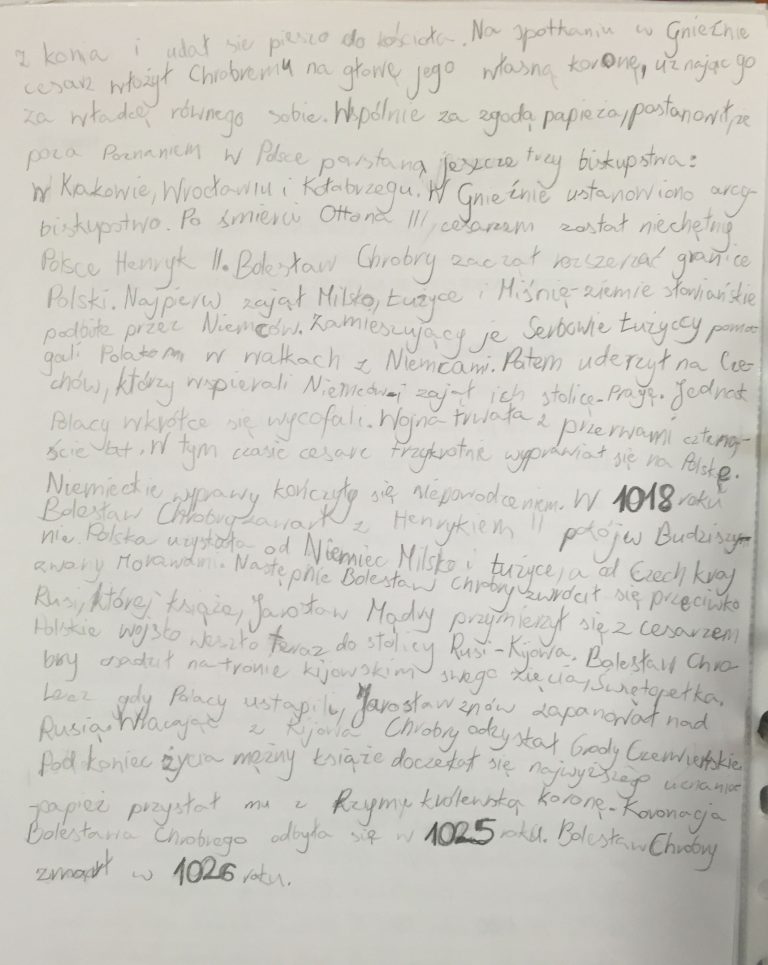 z konia i udał się pieszo do kościoła. Na spotkaniu w Gnieźnie
cesarz włożył Chrobremu na głowę jego własną koronę, uznając go
za władcę równego sobie. Wspólnie za zgodą papieża, postanowił, że
poza Poznaniem w Polsce parstaną jeszcze trzy biskupstwa:
w Krakowie, Wrocławiu i Kołobrzegu. W Gnieźnie ustanowiono arcy-
biskupstwo. Po śmierci Ottona III, cesarzem został niechętny
Polsce Henryk II. Bolesław Chrobry zaczął rozszerzać granice
Polski. Najpierw zajął Milsko, Łużyce i Miśnię-ziemie słowiańskie
podbite przez Niemców. Zamieszujący je Serbowie Łużyccy poma-
gali Polakom w walkach z Niemcami. Potem uderzył na Cze-
chów, którzy wspierali Niemców i zajął ich stolicę-Pragę. Jednak
Polacy wkrótce się wycofali. Wojna trwała z przerwami czterna-
ście lat. W tym czasie cesarz trzykrotnie wyprawiał się na Polskę.
Niemieckie wyprawy kończyły się niepowodzeniem. W 1018 roku
Bolesław Chrobry zawarł z Henrykiem II pokój w Budziszy-
nie. Polska uzyskała od Niemiec Milsko i Łużyce, a od Czech kraj
zwany Morawami. Następnie Bolesław Chrobry zwrócił się przeciwko
Rusi, której książe, Jarosław Mądry przymierzył się z cesarzem
Polskie wojsko weszło teraz do stolicy Rusi-Kijowa. Bolesław Chro-
bry osadził na tronie kijowskim swego zięcia, Świętopełka.
Lecz gdy Polacy ustąpili, Jarosław znów zapanował nad
Rusią. Wracając z Kijowa Chrobry odzyskał Grody Czerwieńskie
Pod koniec życia mężny książe doczekał się najwyższego uznania-
papież przysłał mu z Rzymu królewską koronę. Koronacja
Bolesława Chrobrego odbyła się w 1025 roku. Bolesław Chrobry
zmarł w 1026 roku.